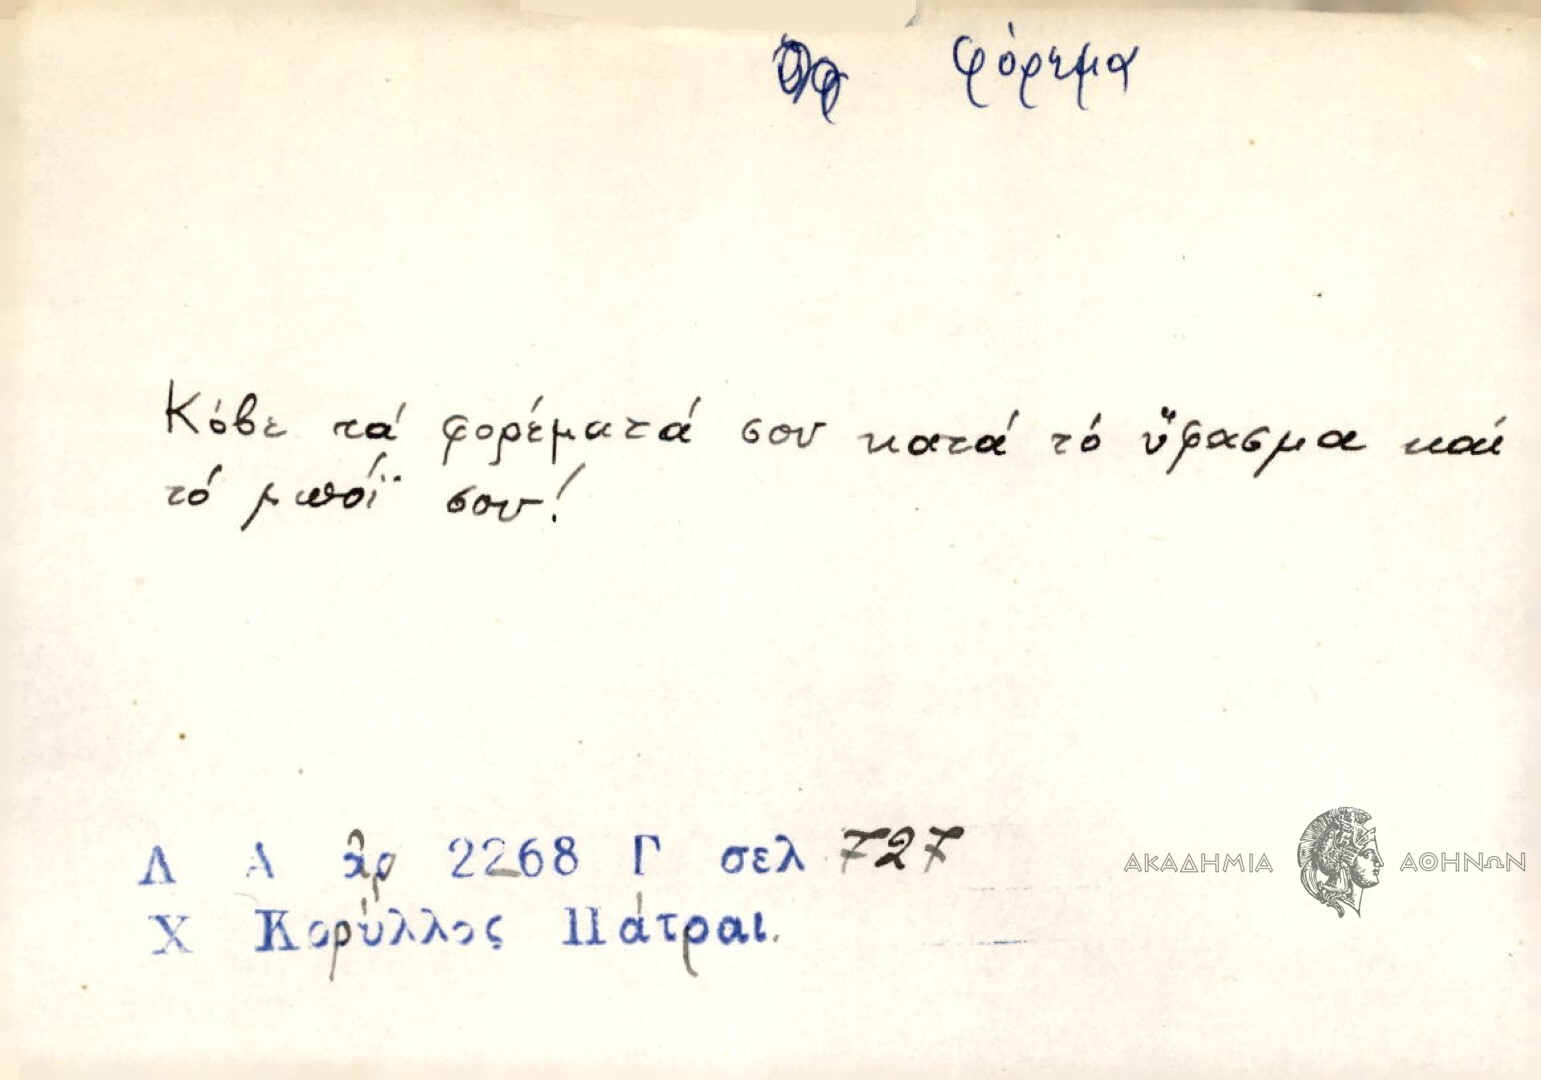 φόρεμα
Κόβε τά φορέματά σου κατά τό ὕφασμα καί
τό μπόϊ σου!
Λ Α ἀρ 2268 Γ σελ 727
Χ Κορύλλος Πάτραι.
ΑΚΑΔΗΜΙΑ ΑΘΗΝΩΝ